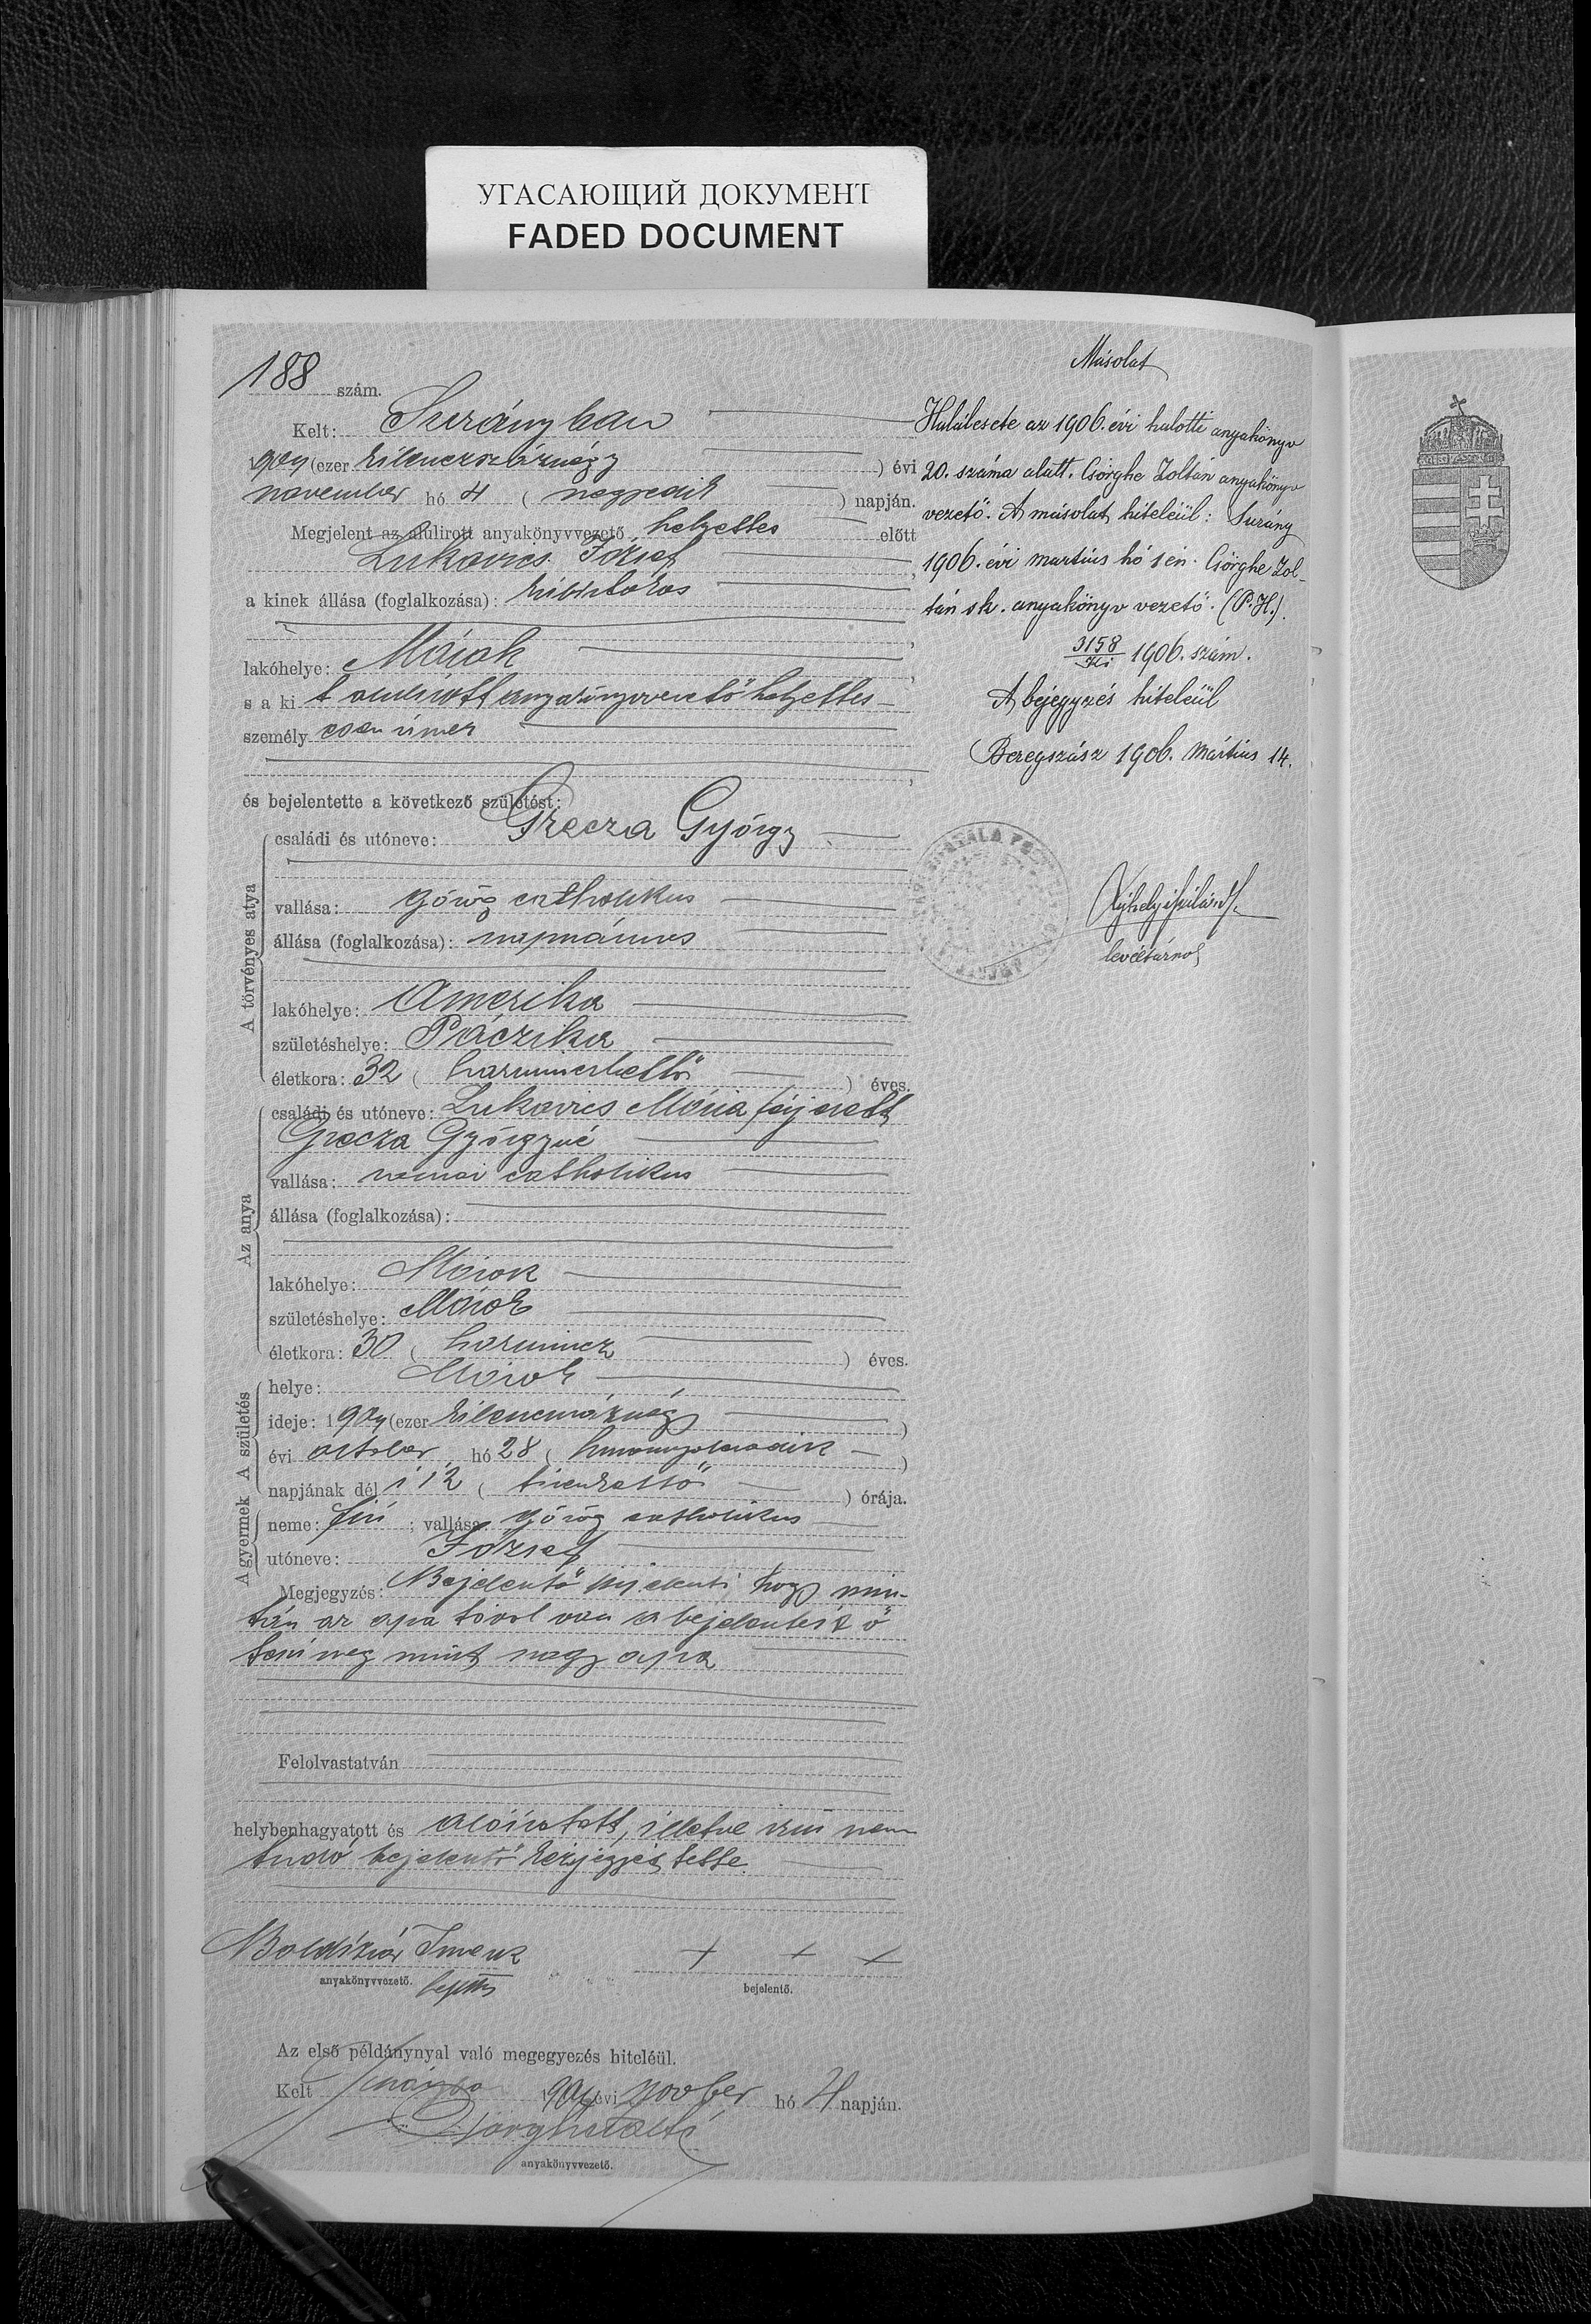 УГАСАЮЩИЙ ДОКУМЕНТ
FADED DOCUMENT
188 szám.
Kelt: Surányban
1904 (ezer kilenczszáznégy ) évi
november hó 4 ( negyedik ) napján.
Megjelent az alulirott anyakönyvvezető helyettes előtt
Lukovics József
a kinek állása (foglalkozása):
lakóhelye: Márok
s a ki t alulirott anyakönyvvezető helyettes
személyesen ismer
és bejelentette a következő születést:
A törvényes atya
családi és utóneve: Grecza György
vallása: görög catholikus
állása (foglalkozása): napszámos
lakóhelye: Amerika
születéshelye: Ráczika
életkora: 32 ( harminczkettő ) éves.
Az anya
családi és utóneve: Lukovics Mária férjezett
Grecza Györgyné
vallása: római catholikus
állása (foglalkozása):
lakóhelye: Márok
születéshelye: Márok
életkora: 30 ( harmincz ) éves.
A születés
helye: Márok
ideje: 1904 (ezer kilenczszáznégy )
évi october hó 28 ( huszonnyolczadik )
napjának dél i 12 ( tizenkettő ) órája.
A gyermek
neme: fiú ; vallása: görög catholikus
utóneve: József
Megjegyzés: Bejelentő kijelenti, hogy min-
tán az apa távol van a bejelentést ő
teszi meg mint nagy apa
Felolvastatván
helybenhagyatott és aláiratott, illetve irni nem
tudó bejelentő kézjegyét tette.
Boldizsár Imre
anyakönyvvezető. helyettes
+ + +
bejelentő.
Az első példánynyal való megegyezés hiteléül.
Kelt 1904 évi november hó 4 napján.
Csörghe Zoltán
anyakönyvvezető.
Másolat
Halálesete az 1906. évi halotti anyakönyv
20. száma alatt. Csörghe Zoltán anyakönyv
vezető. A másolat hiteléül: Surány
1906. évi martius hó 1 én. Csörghe Zol-
tán sk. anyakönyv vezető. (P.H.).
3158/Ki 1906. szám.
A bejegyzés hiteléül
Beregszász 1906. Mártius 14.
levéltárnok